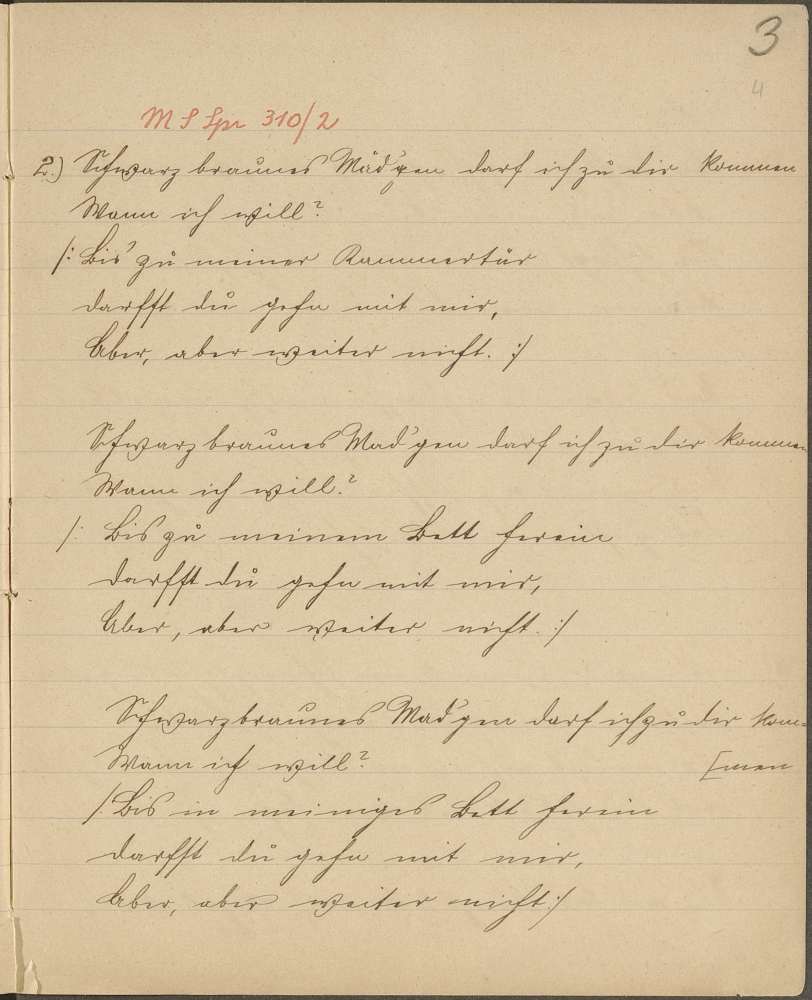 3
4
M S Spr 310/2
2.) Schwarz braunes Mädchen darf ich zu dir kommen
Wann ich will?
/: Bis zu meiner Kammertür
darfst du gehn mit mir,
Aber, aber weiter nicht. :/
Schwarz braunes Mädchen darf ich zu dir kommen
Wann ich will?
/: Bis zu meinem Bett herein
darfst du gehn mit mir,
Aber, aber weiter nicht. :/
Schwarzbraunes Mädchen darf ich zu dir kom=
Wann ich will? [men
/: Bis in meiniges Bett herein
darfst du gehn mit mir,
Aber, aber weiter nicht :/